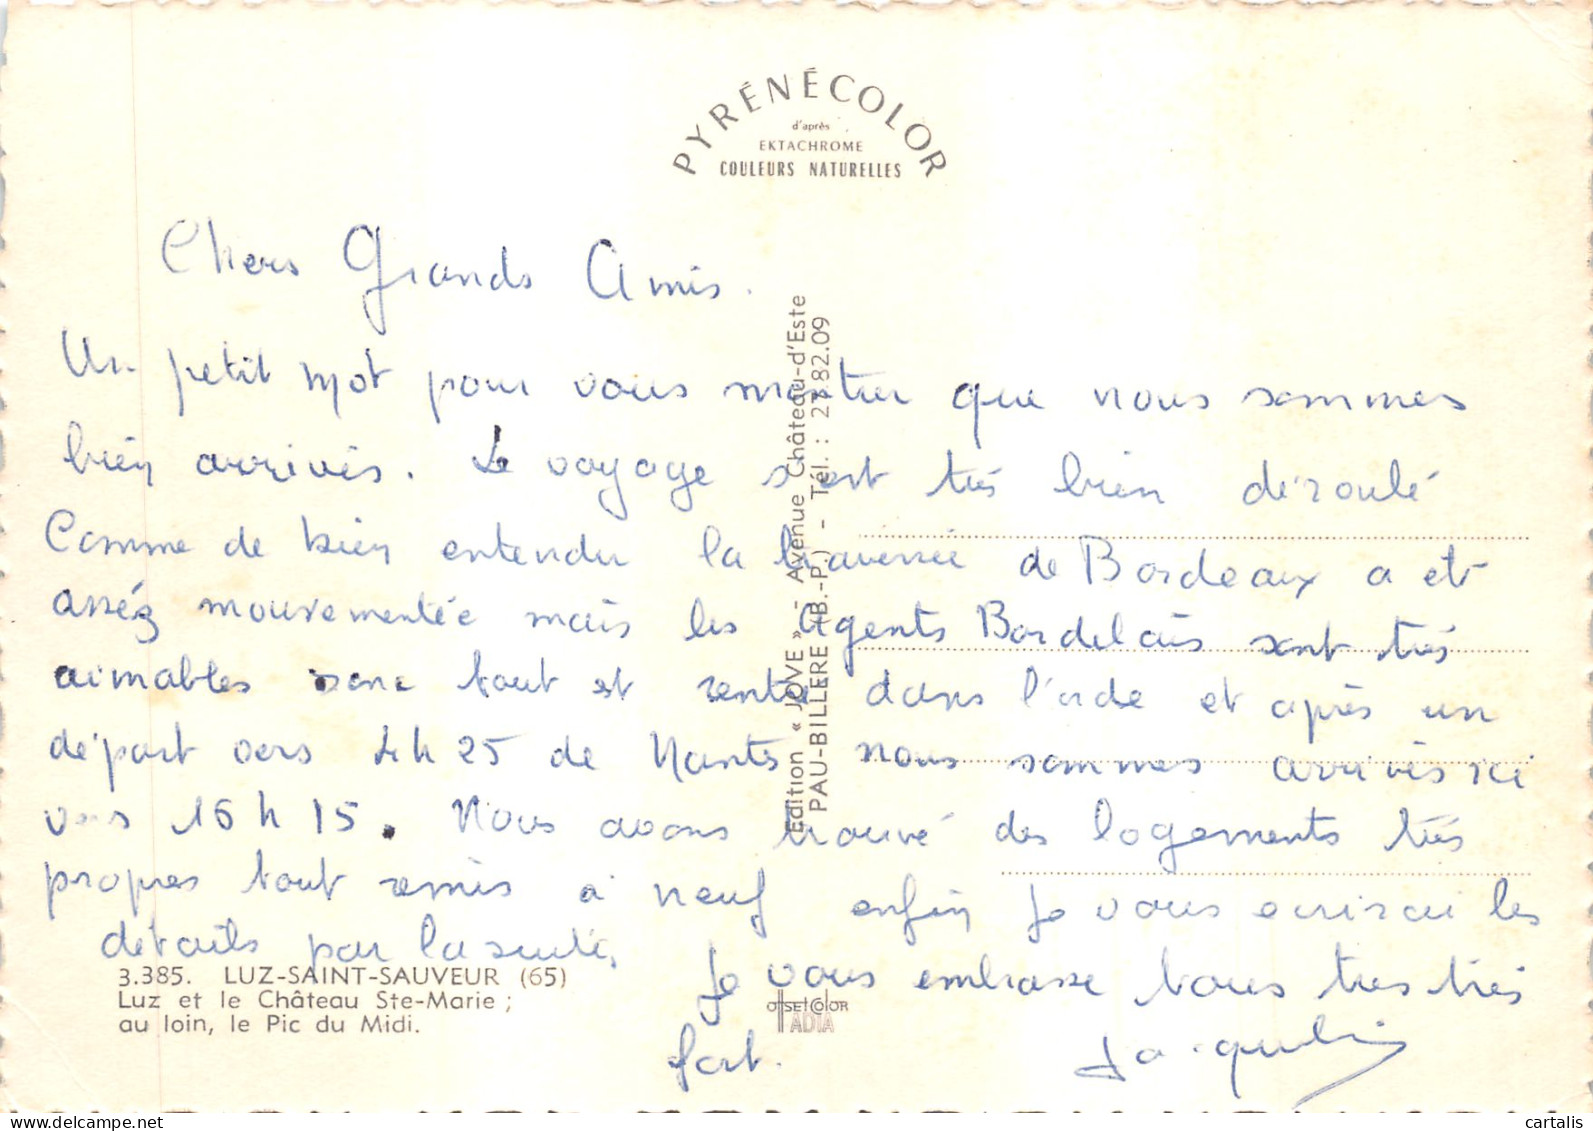 PYRÉNÉCOLOR
d'après
EKTACHROME
COULEURS NATURELLES
Chers Grands Amis.
Un petit mot pour vous montrer que nous sommes
bien arrivés. Le voyage s'est très bien déroulé
Comme de bien entendu la traversée de Bordeaux a et
assez mouvementée mais les Agents Bordelais sont très
aimables donc tout est rentré dans l'orde et après un
départ vers 4h25 de Nantes nous sommes arrivés ici
vers 16h15. Nous avons trouvé des logements très
propres tout remis a neuf enfin Je vous ecrirai les
détails par la suite,
Je vous embrasse tous tres très
fort.
Jacqueline
Edition « JOVE » - Avenue Château-d'Este
PAU-BILLERE (B.-P.) - Tél. : 27.82.09
3.385. LUZ-SAINT-SAUVEUR (65)
Luz et le Château Ste-Marie ;
au loin, le Pic du Midi.
OffSETCOlOR
ADIA
cartalis
delcampe.net